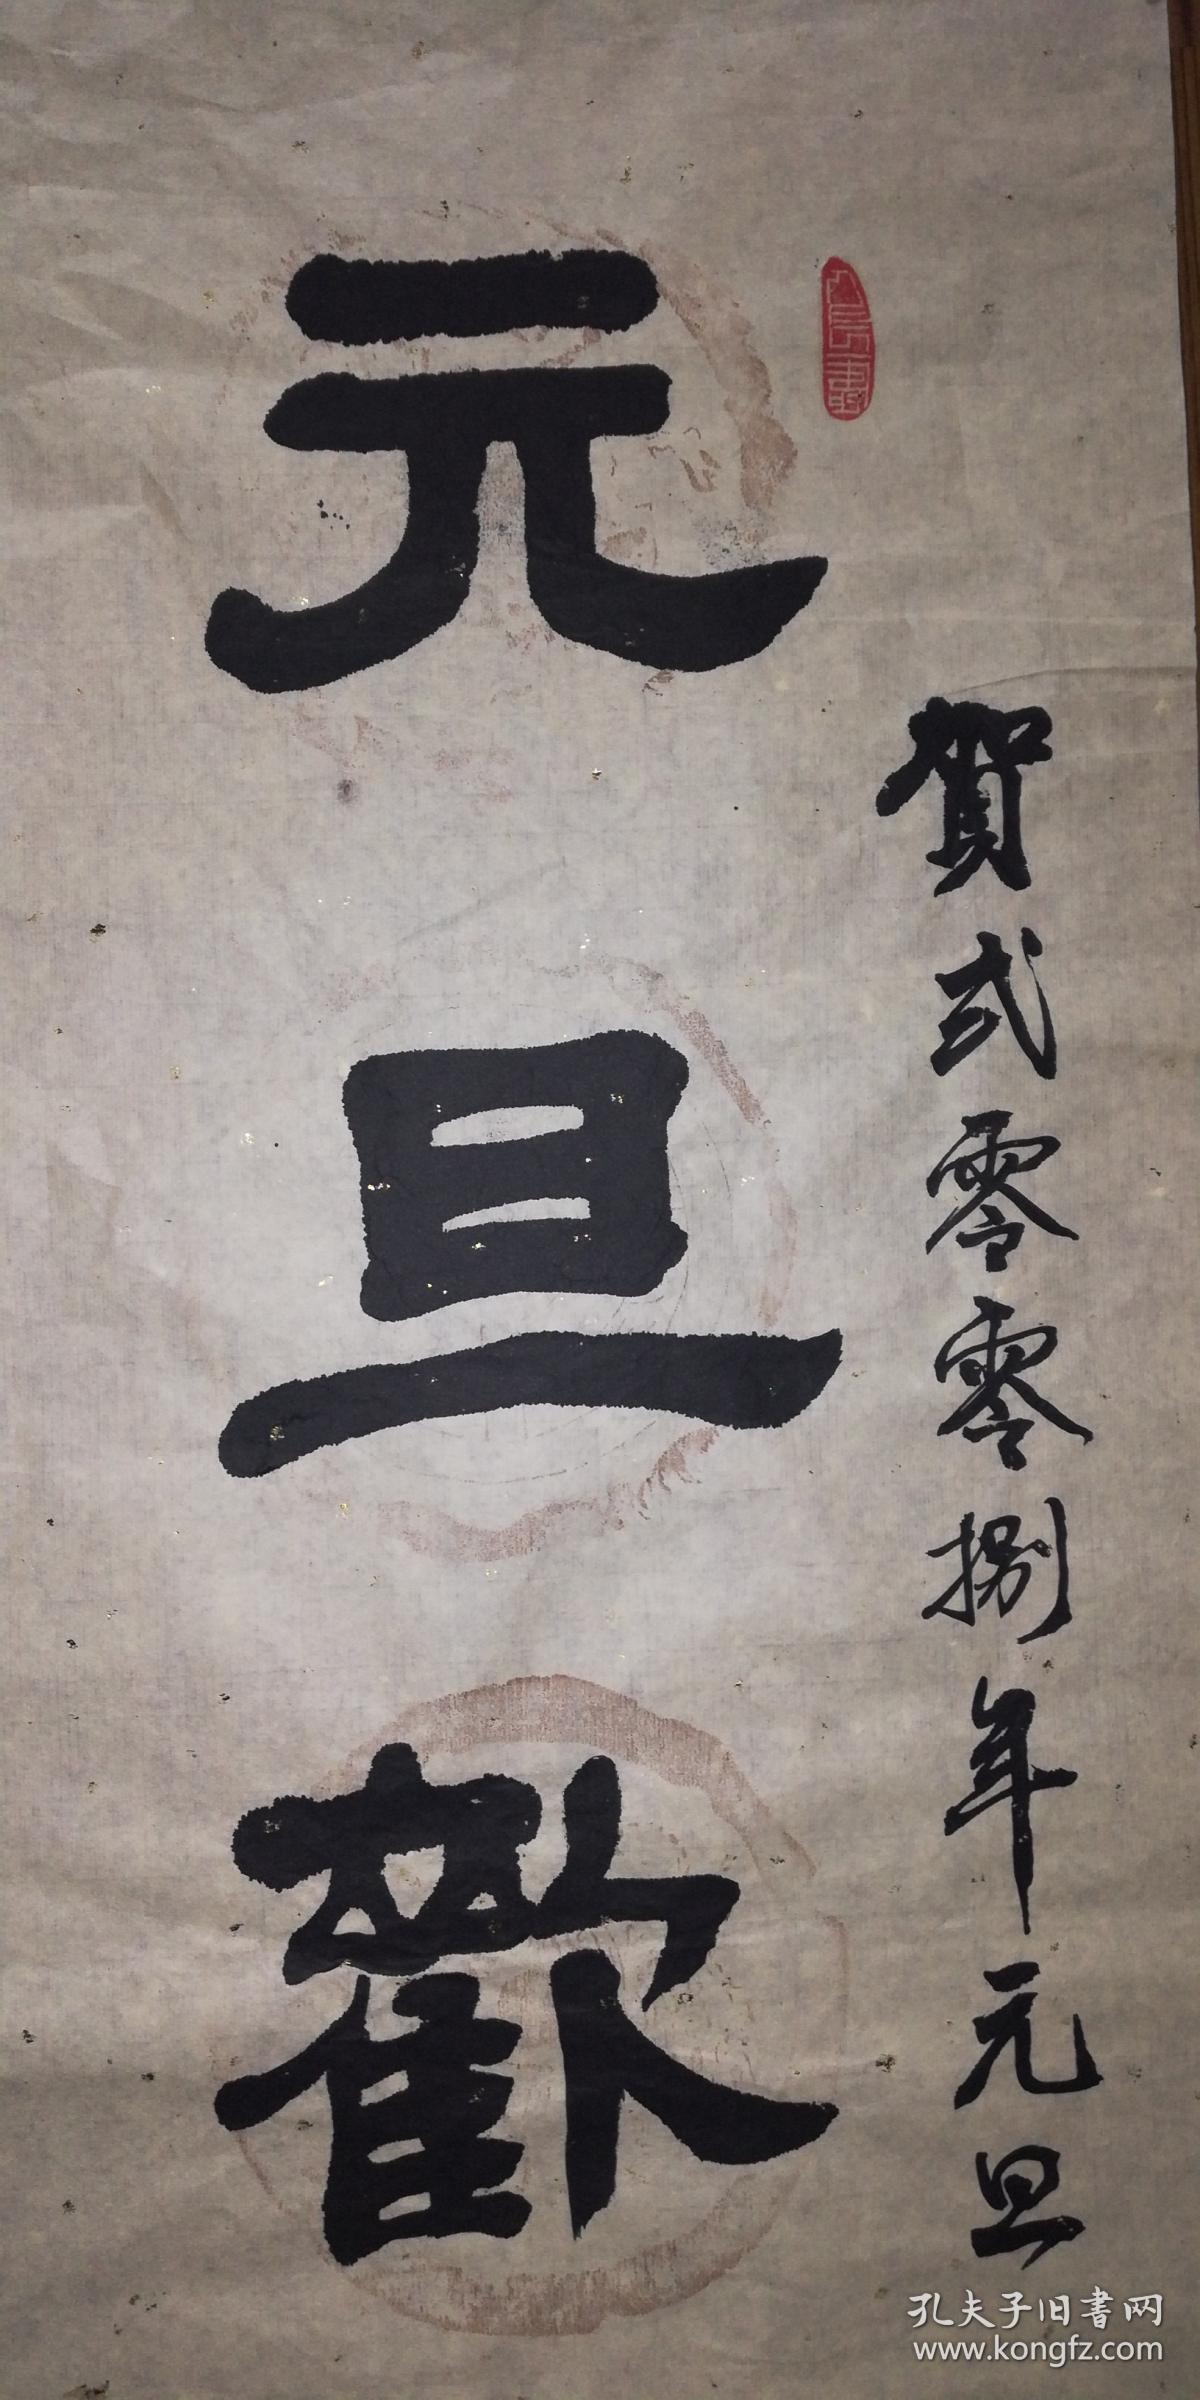 賀弍零零捌年元旦
元旦歡
孔夫子旧書网
www.kongfz.com